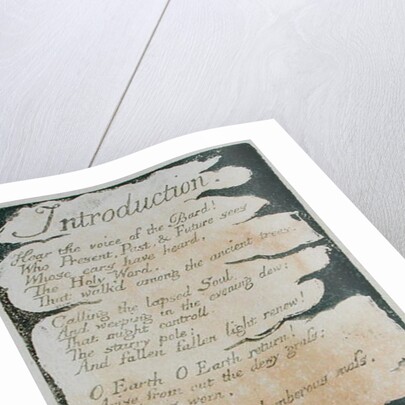 Introduction.
Hear the voice of the Bard!
Who Present, Past, & Future sees
Whose ears have heard,
The Holy Word,
That walk'd among the ancient trees.
Calling the lapsed Soul
And weeping in the evening dew:
That might controll
The starry pole;
And fallen fallen light renew!
O Earth O Earth return!
Arise from out the dewy grass;
worn,
slumberous mass.